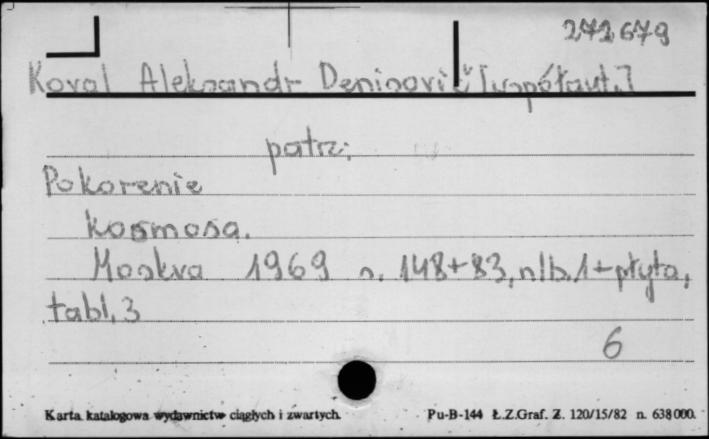 272679
Koval Aleksandr Denisovič [współaut.]
patrz:
Pokorenie
kosmosa.
Moskva 1969 s. 148+83, nlb. 1+płyta,
tabl. 3
6
Karta katalogowa wydawnictw ciągłych i zwartych. Pu-B-144 Ł.Z.Graf. Z. 120/15/82 n. 638000.